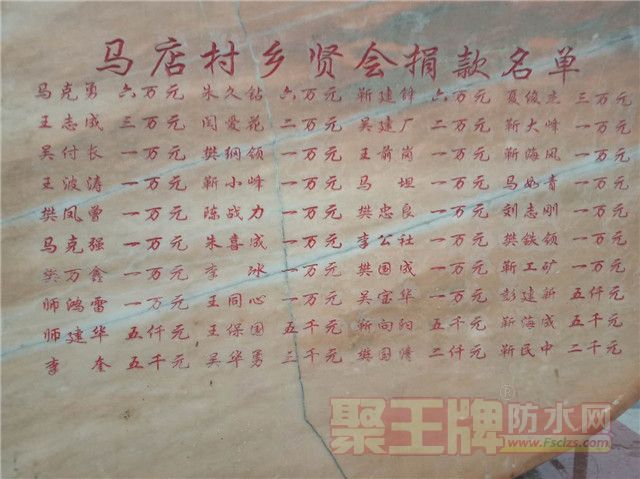 马店村乡贤会捐款名单
马克勇 六万元 朱久钻 六万元 靳建锋 六万元 夏俊杰 三万元
王志成 三万元 闫爱花 二万元 吴建厂 二万元 靳大峰 一万元
吴付长 一万元 樊纲领 一万元 王前岗 一万元 靳海风 一万元
王波涛 一万元 靳小峰 一万元 马坦 一万元 马如青 一万元
樊凤曾 一万元 陈战力 一万元 樊忠良 一万元 刘志刚 一万元
马克强 一万元 朱喜成 一万元 李公社 一万元 樊铁领 一万元
樊万鑫 一万元 李冰 一万元 樊国成 一万元 靳工矿 一万元
师鸿雷 一万元 王同心 一万元 吴宝华 一万元 彭建新 五仟元
师建华 五仟元 王保国 五千元 靳向阳 五千元 靳海成 五千元
李奎 五千元 吴华勇 三千元 樊国清 二仟元 靳民中 二千元
聚王牌®防水网
www.Fsclzs.com